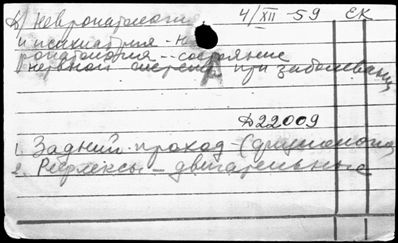 в) Невропатологи 4/XII-59 ЕК
и психиатрия - Н
ропатология - состояние
нервной системы при заболевани
Д22009
1. Задний проход - (физиология
2. Рефлексы - двигательные